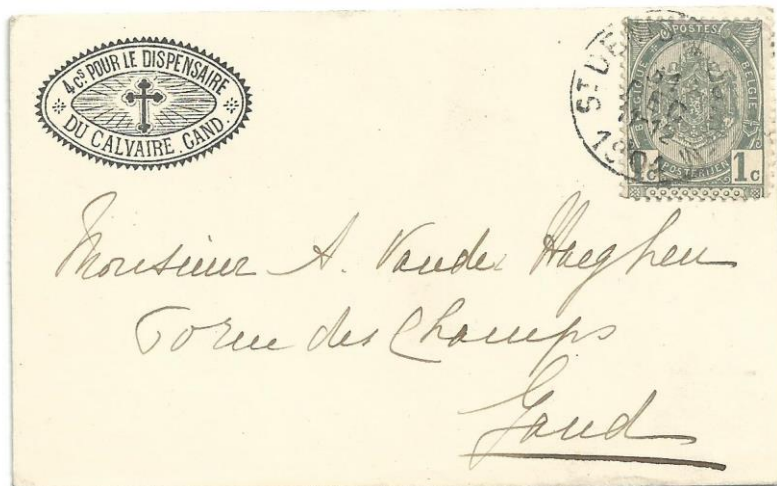 4 Cˢ POUR LE DISPENSAIRE
DU CALVAIRE. GAND.
POSTES
BELGIQUE BELGIE
1c 1c
POSTERIJEN
Sᵀ DE
12
Monsieur A. Vander Haeghen
rue des Champs
Gand